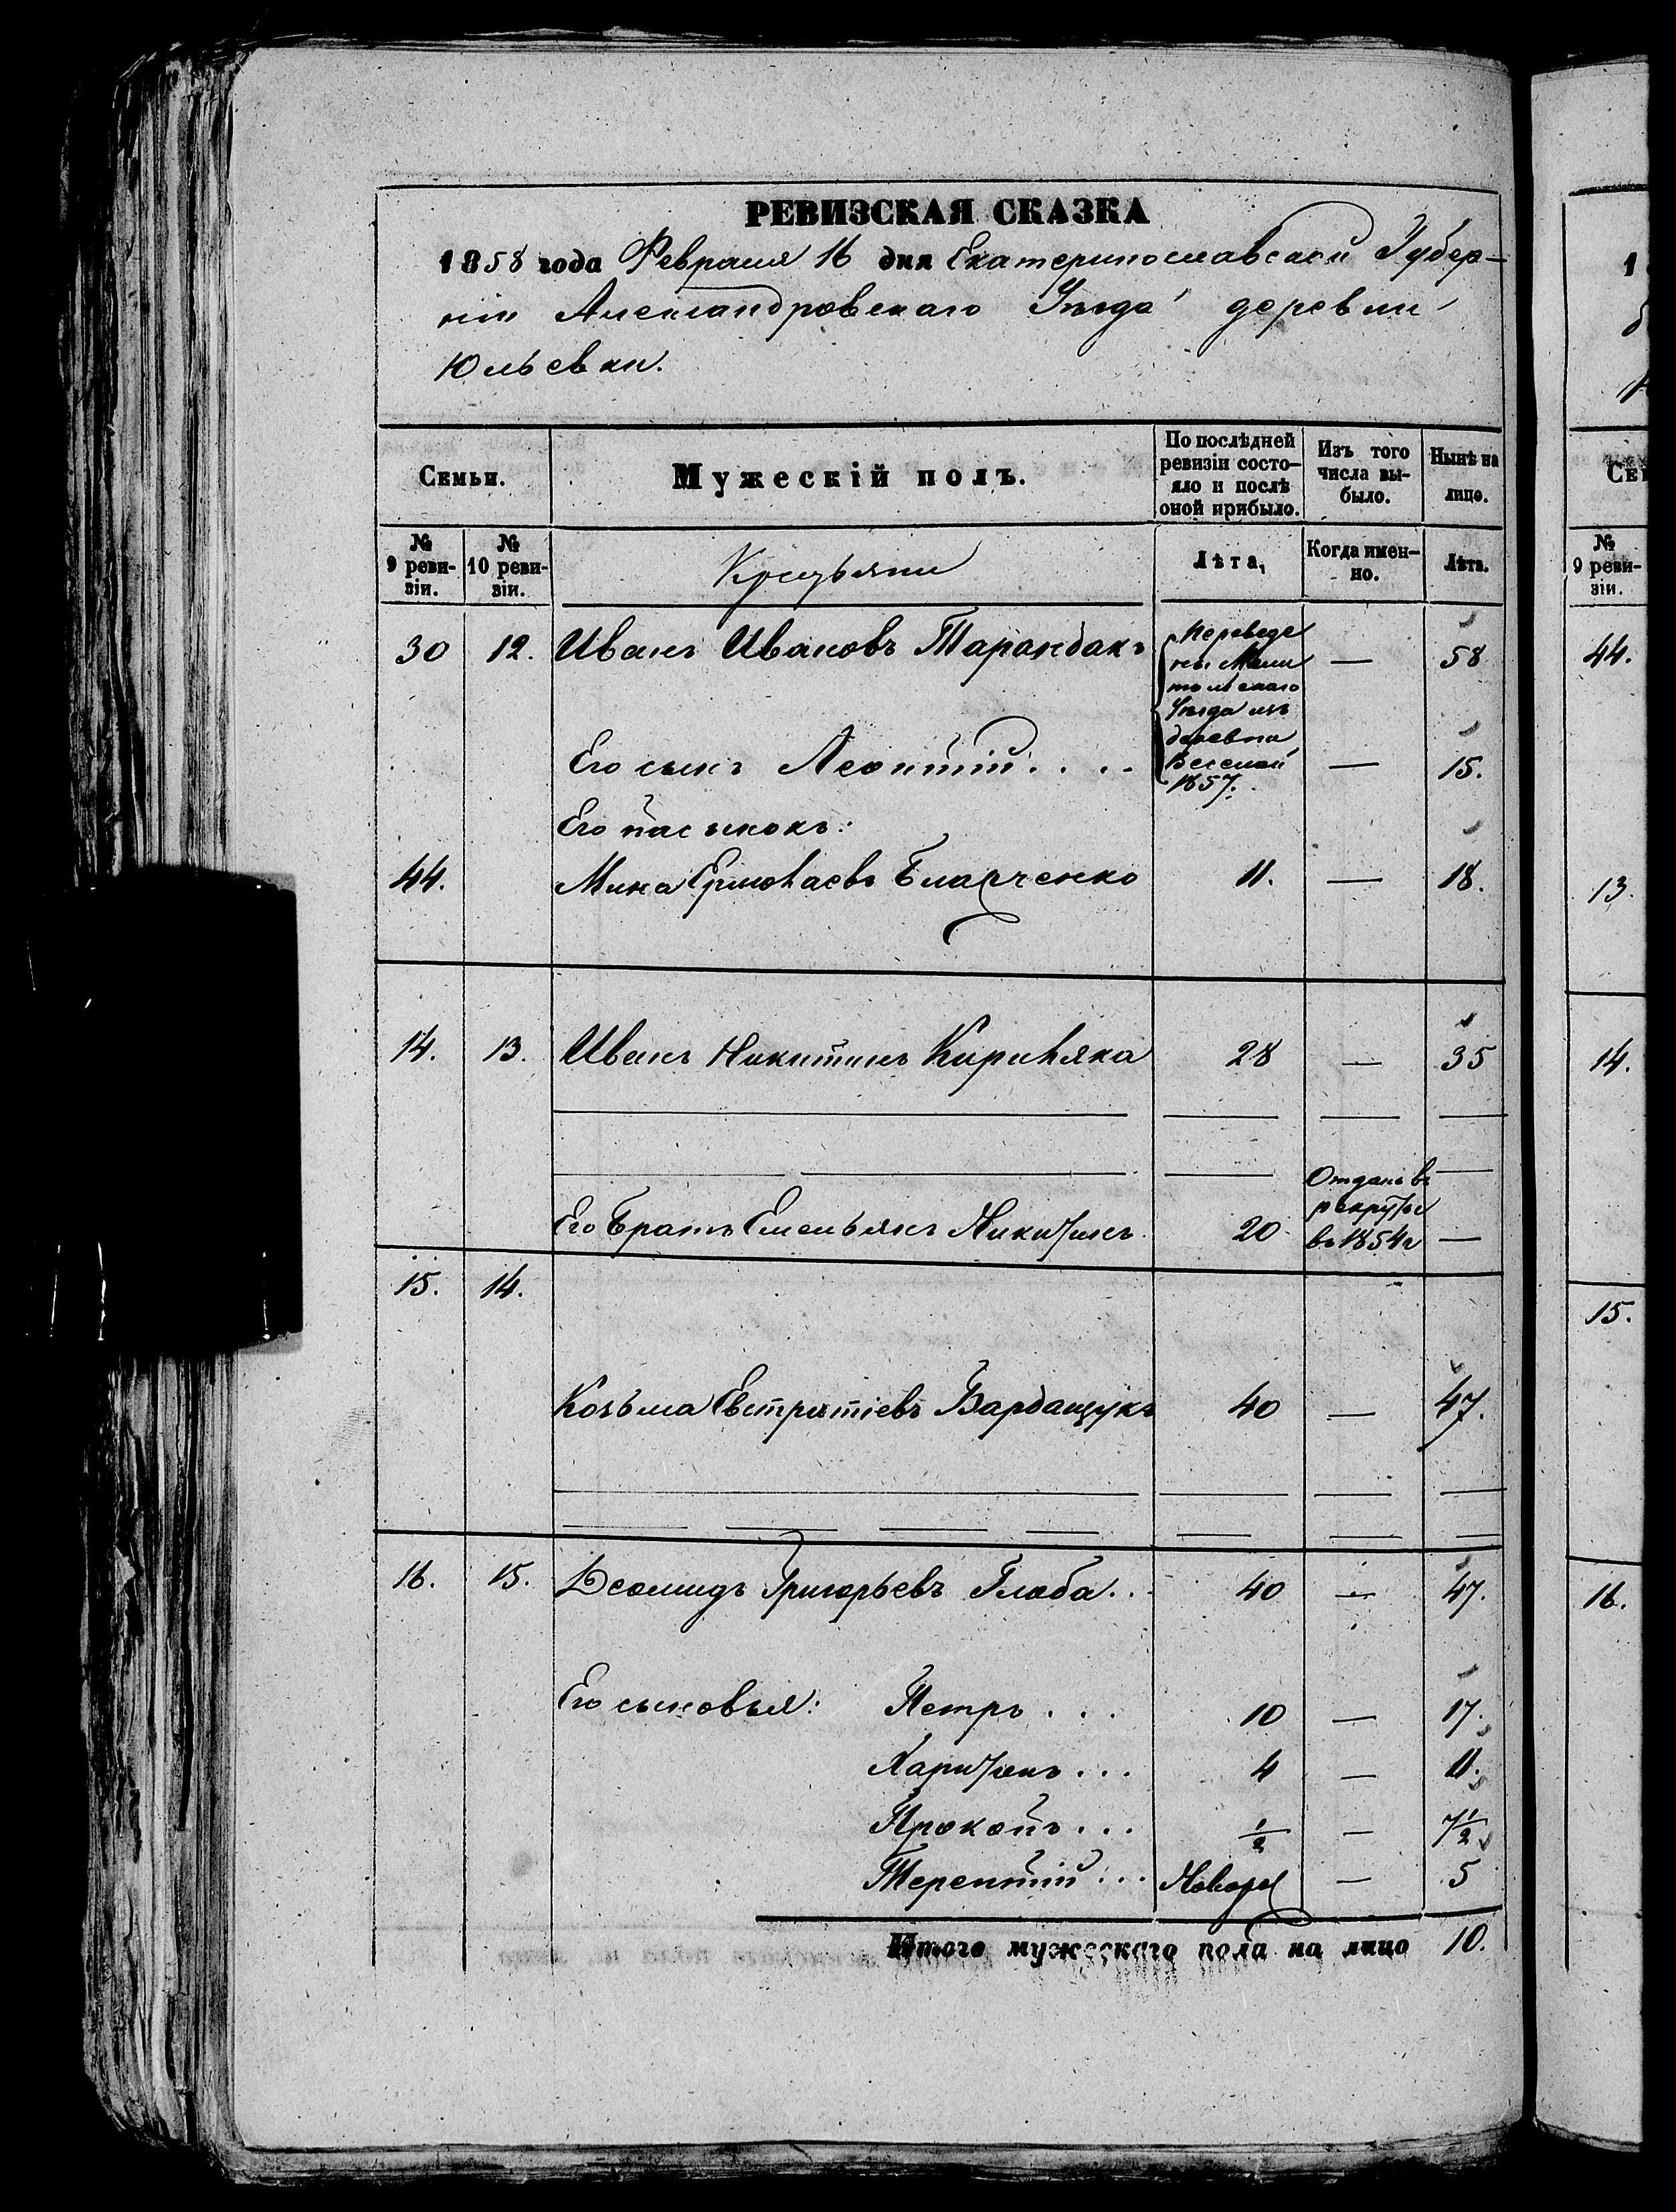 РЕВИЗСКАЯ СКАЗКА
1858 года Февраля 16 дня Екатеринославской Губер-
ніи Александровскаго Уѣзда деревни
Юльевки.
Семьи.
Мужескій полъ.
По послѣдней ревизіи состо-
яло и послѣ оной прибыло.
Изъ того числа вы-
было.
Нынѣ на лицо.
№ 9 реви-
зіи.
№ 10 реви-
зіи.
Крестьяни
Лѣта,
Когда имен-
но.
Лѣта.
30 12. Иванъ Ивановъ Тарандакъ — 58
Переведе
ны Мели
топольскаго
Уѣзда изъ
деревни
Веселой
1857.
Его сынъ Леонтій.... — 15.
Его пасынокъ:
44. Мина Ермолаевъ 11. — 18.
14. 13. Иванъ Никитинъ 28 — 35
Его Братъ Емельянъ Никитинъ 20 Отданъ въ рекруты въ 1854 г —
15. 14.
Козьма Евстратіевъ Вардащукъ 40 — 47.
16. 15. Деомидъ Григорьевъ Глоба... 40 — 47.
Его сыновья: Петръ... 10 — 17.
Харитонъ... 4 — 11.
Прокопъ... ½ — 7½
Терентій... Новорж — 5
Итого мужескаго пола на лицо 10.
1
№ 9 реви-
зіи.
44.
13.
14.
15.
16.